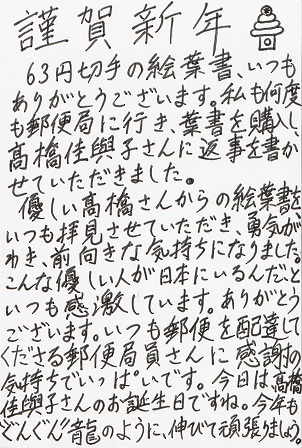 謹賀新年
63円切手の絵葉書、いつも
ありがとうございます。私も何度
も郵便局に行き、葉書を購入し
高橋佳與子さんに返事を書か
せていただきました。
優しい高橋さんからの絵葉書を
いつも拝見させていただき、勇気が
わき、前向きな気持ちになりました。
こんな優しい人が日本にいるんだと
いつも感激しています。ありがとう
ございます。いつも郵便を配達して
くださる郵便局員さんに感謝の
気持ちでいっぱいです。今日は高橋
佳與子さんのお誕生日ですね。今年も
ぐんぐん龍のように、伸びて頑張りましょう